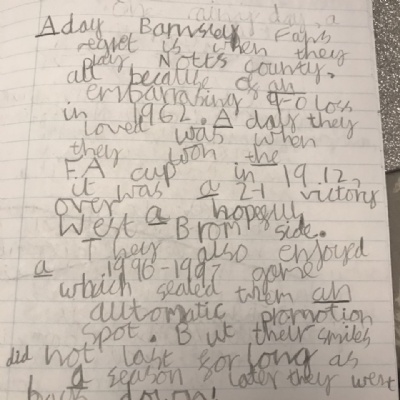 A day Barnsley Fans
regret is when they
play Notts county.
all because of an
embarrasing 9-0 loss
in 1962. A day they
loved was when
they toon the
F.A cup in 19.12,
it was a 2-1 victory
over a hopeful
West Brom side.
They also enjoyed
a 1996-1997 game
which sealed them an
automatic promotion
spot. But their smiles
did not last for long as
a season later they west
back down!